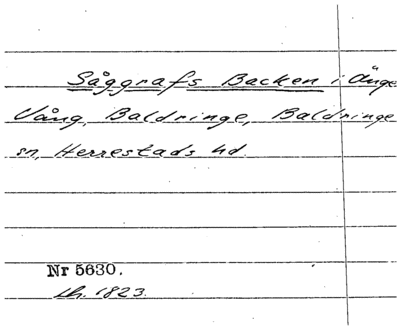 Såggrafs Backen i Änge
Vång, Baldringe, Baldringe
sn, Herrestads hd.
Nr 5630.
Lh. 1823.